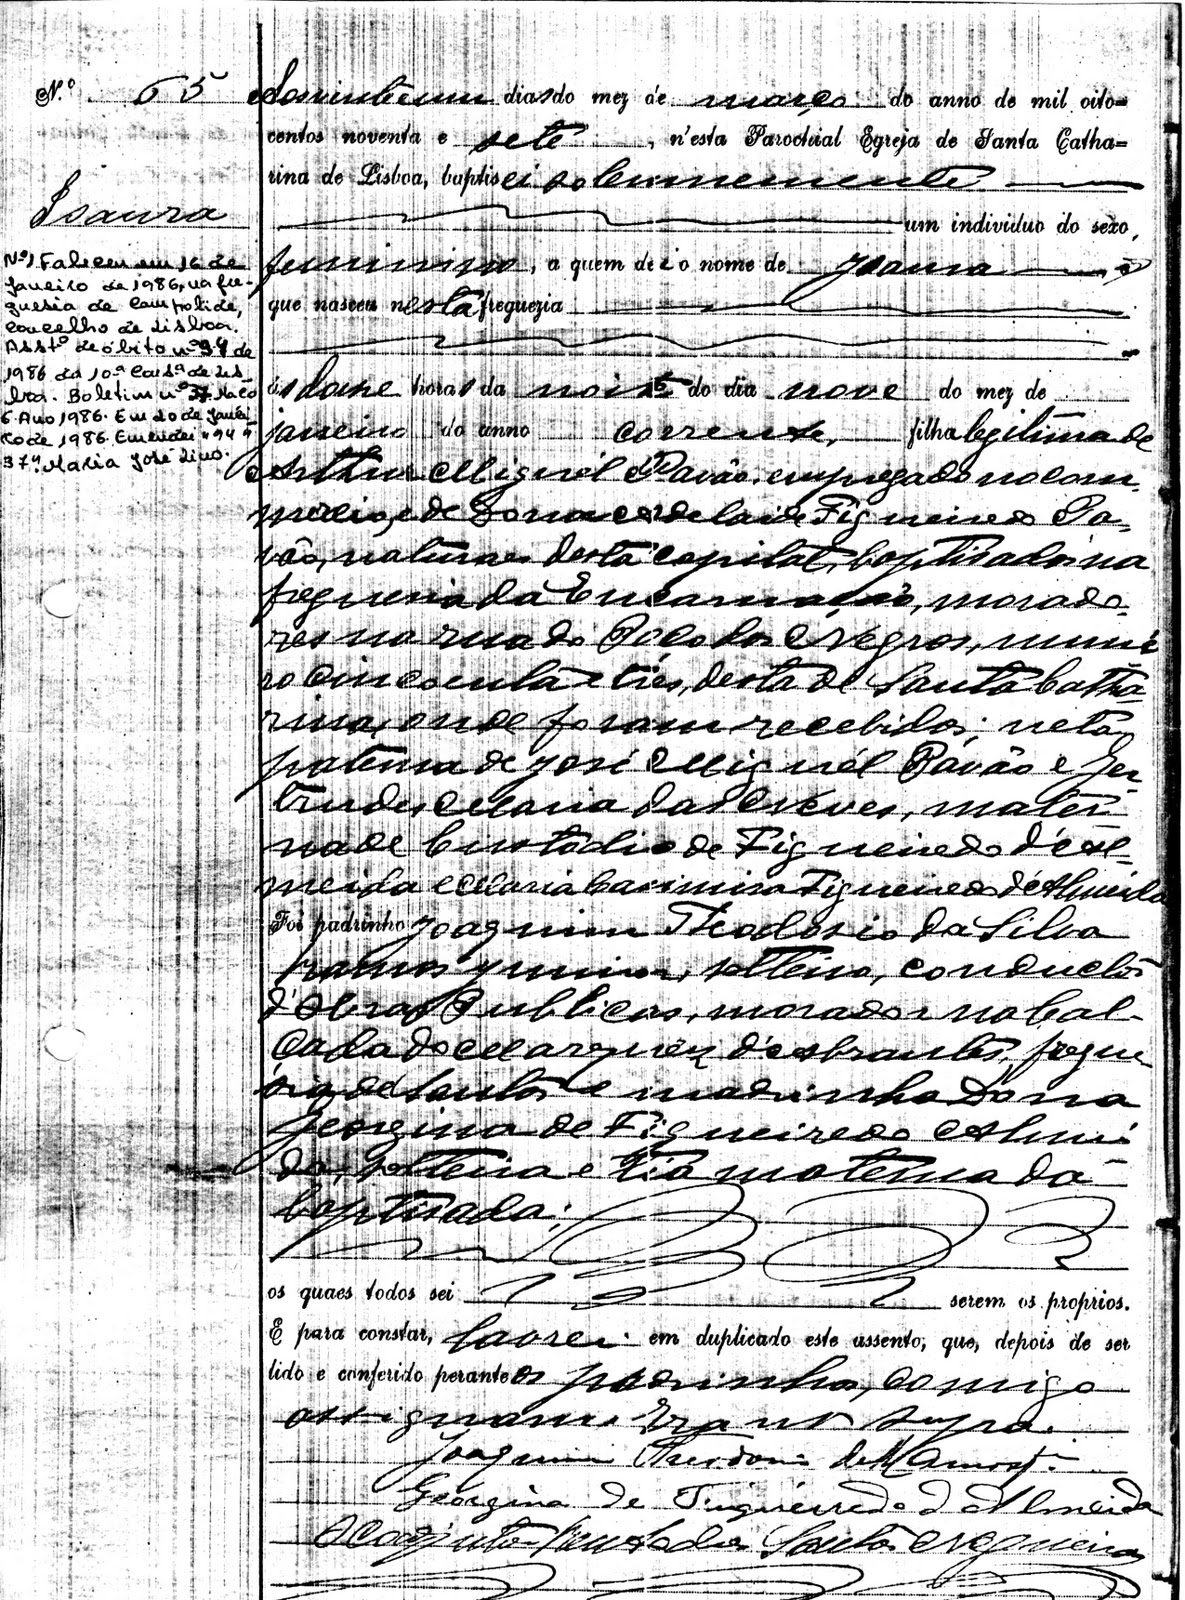 N.º 65
Isaura
Nº1 Faleceu em 16 de
Janeiro de 1986, na fre-
guesia de Campolide,
concelho de Lisboa.
Asstº de óbito nº 94 de
1986 da 10ª Consª de Lis-
boa. Boletim nº 37 Maço
6 Ano 1986. Em 20 de Janei-
ro de 1986. Emendei "94"
"37". Maria José Lino.
Aos vinte e um dias do mez de março do anno de mil oito=
centos noventa e sete, n'esta Parochial Egreja de Santa Catha=
rina de Lisboa, baptisei solemnemente
um individuo do sexo
feminino, a quem dei o nome de Isaura
que nasceu nesta freguezia
ás doze horas da noite do dia nove do mez de
janeiro do anno corrente, filha legitima de
Arthur Miguél Pavão, empregado no com-
mercio, e de Dona Adelaide Figueiredo Pa-
vão, naturaes desta capital, baptisados na
freguesia da Encarnação, morado-
res na rua do Poço dos Negros, nume
ro cincoenta e tres, desta de Santa Catha-
rina, onde foram recebidos; neta
paterna de José Miguél Pavão e Ger-
trudes Maria das Neves, mater-
na de Custódio de Figueiredo d'Al-
meida e Maria Casimira Figueiredo d'Almeida
Foi padrinho Joaquim Theodosio da Silva
Ramos Junior, solteiro, conductor
d'Obras Publicas, morador na Cal-
çada do Marquez d'Abrantes, fregue-
sia de Santos e madrinha Dona
Georgina de Figueiredo Almei
da, solteira e tia materna da
baptisada;
os quaes todos sei serem os proprios.
E para constar, lavrei em duplicado este assento, que, depois de ser
lido e conferido perante os padrinhos, comigo
assignaram. Era ut supra.
Joaquim Theodosio da S. Ramos Jr.
Georgina de Figueiredo d'Almeida
O coadjutor Santos Nogueira